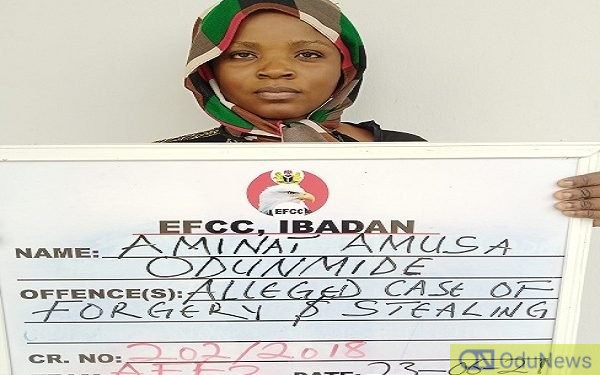 EFCC
EFCC, IBADAN
NAME: AMINAT AMUSA
ODUNMIDE
OFFENCE(S): ALLEGED CASE OF
FORGERY & STEALING
CR. NO: 202/2018
DATE: 23-08-21
ON OduNews